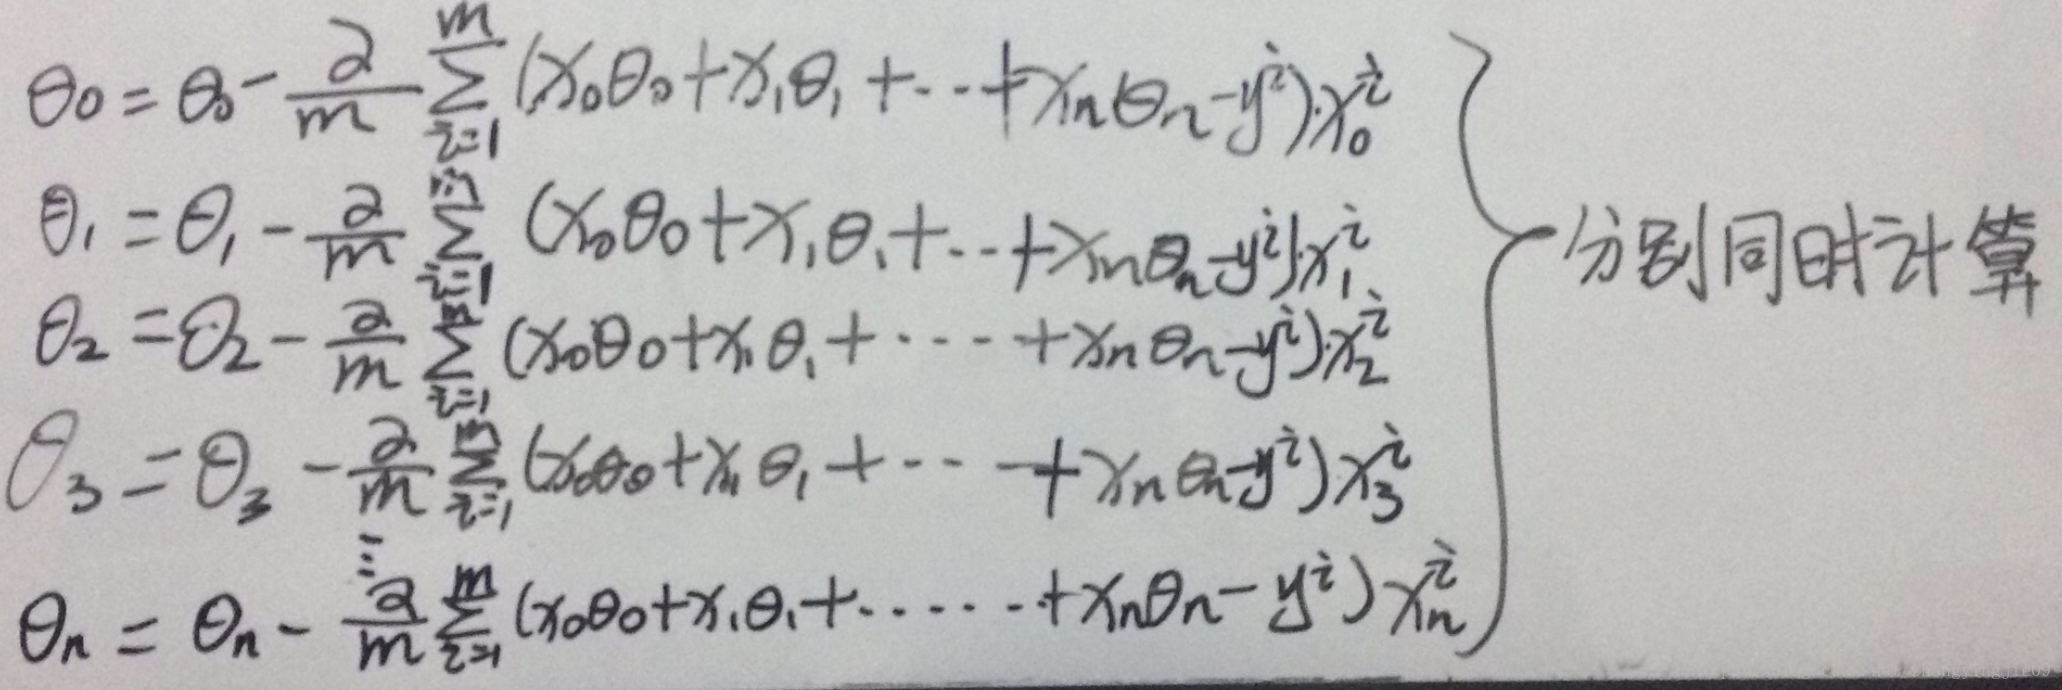 θ₀ = θ₀ - ∂/m ∑ᵢ₌₁ᵐ (x₀θ₀ + x₁θ₁ + ... + xₙθₙ - yⁱ)·x₀ⁱ
θ₁ = θ₁ - ∂/m ∑ᵢ₌₁ᵐ (x₀θ₀ + x₁θ₁ + ... + xₙθₙ - yⁱ)·x₁ⁱ
分别同时计算
θ₂ = θ₂ - ∂/m ∑ᵢ₌₁ᵐ (x₀θ₀ + x₁θ₁ + .... + xₙθₙ - yⁱ)·x₂ⁱ
θ₃ = θ₃ - ∂/m ∑ᵢ₌₁ᵐ (x₀θ₀ + x₁θ₁ + ... + xₙθₙ - yⁱ)x₃ⁱ
⋮
θₙ = θₙ - ∂/m ∑ᵢ₌₁ᵐ (x₀θ₀ + x₁θ₁ + ...... + xₙθₙ - yⁱ)xₙⁱ